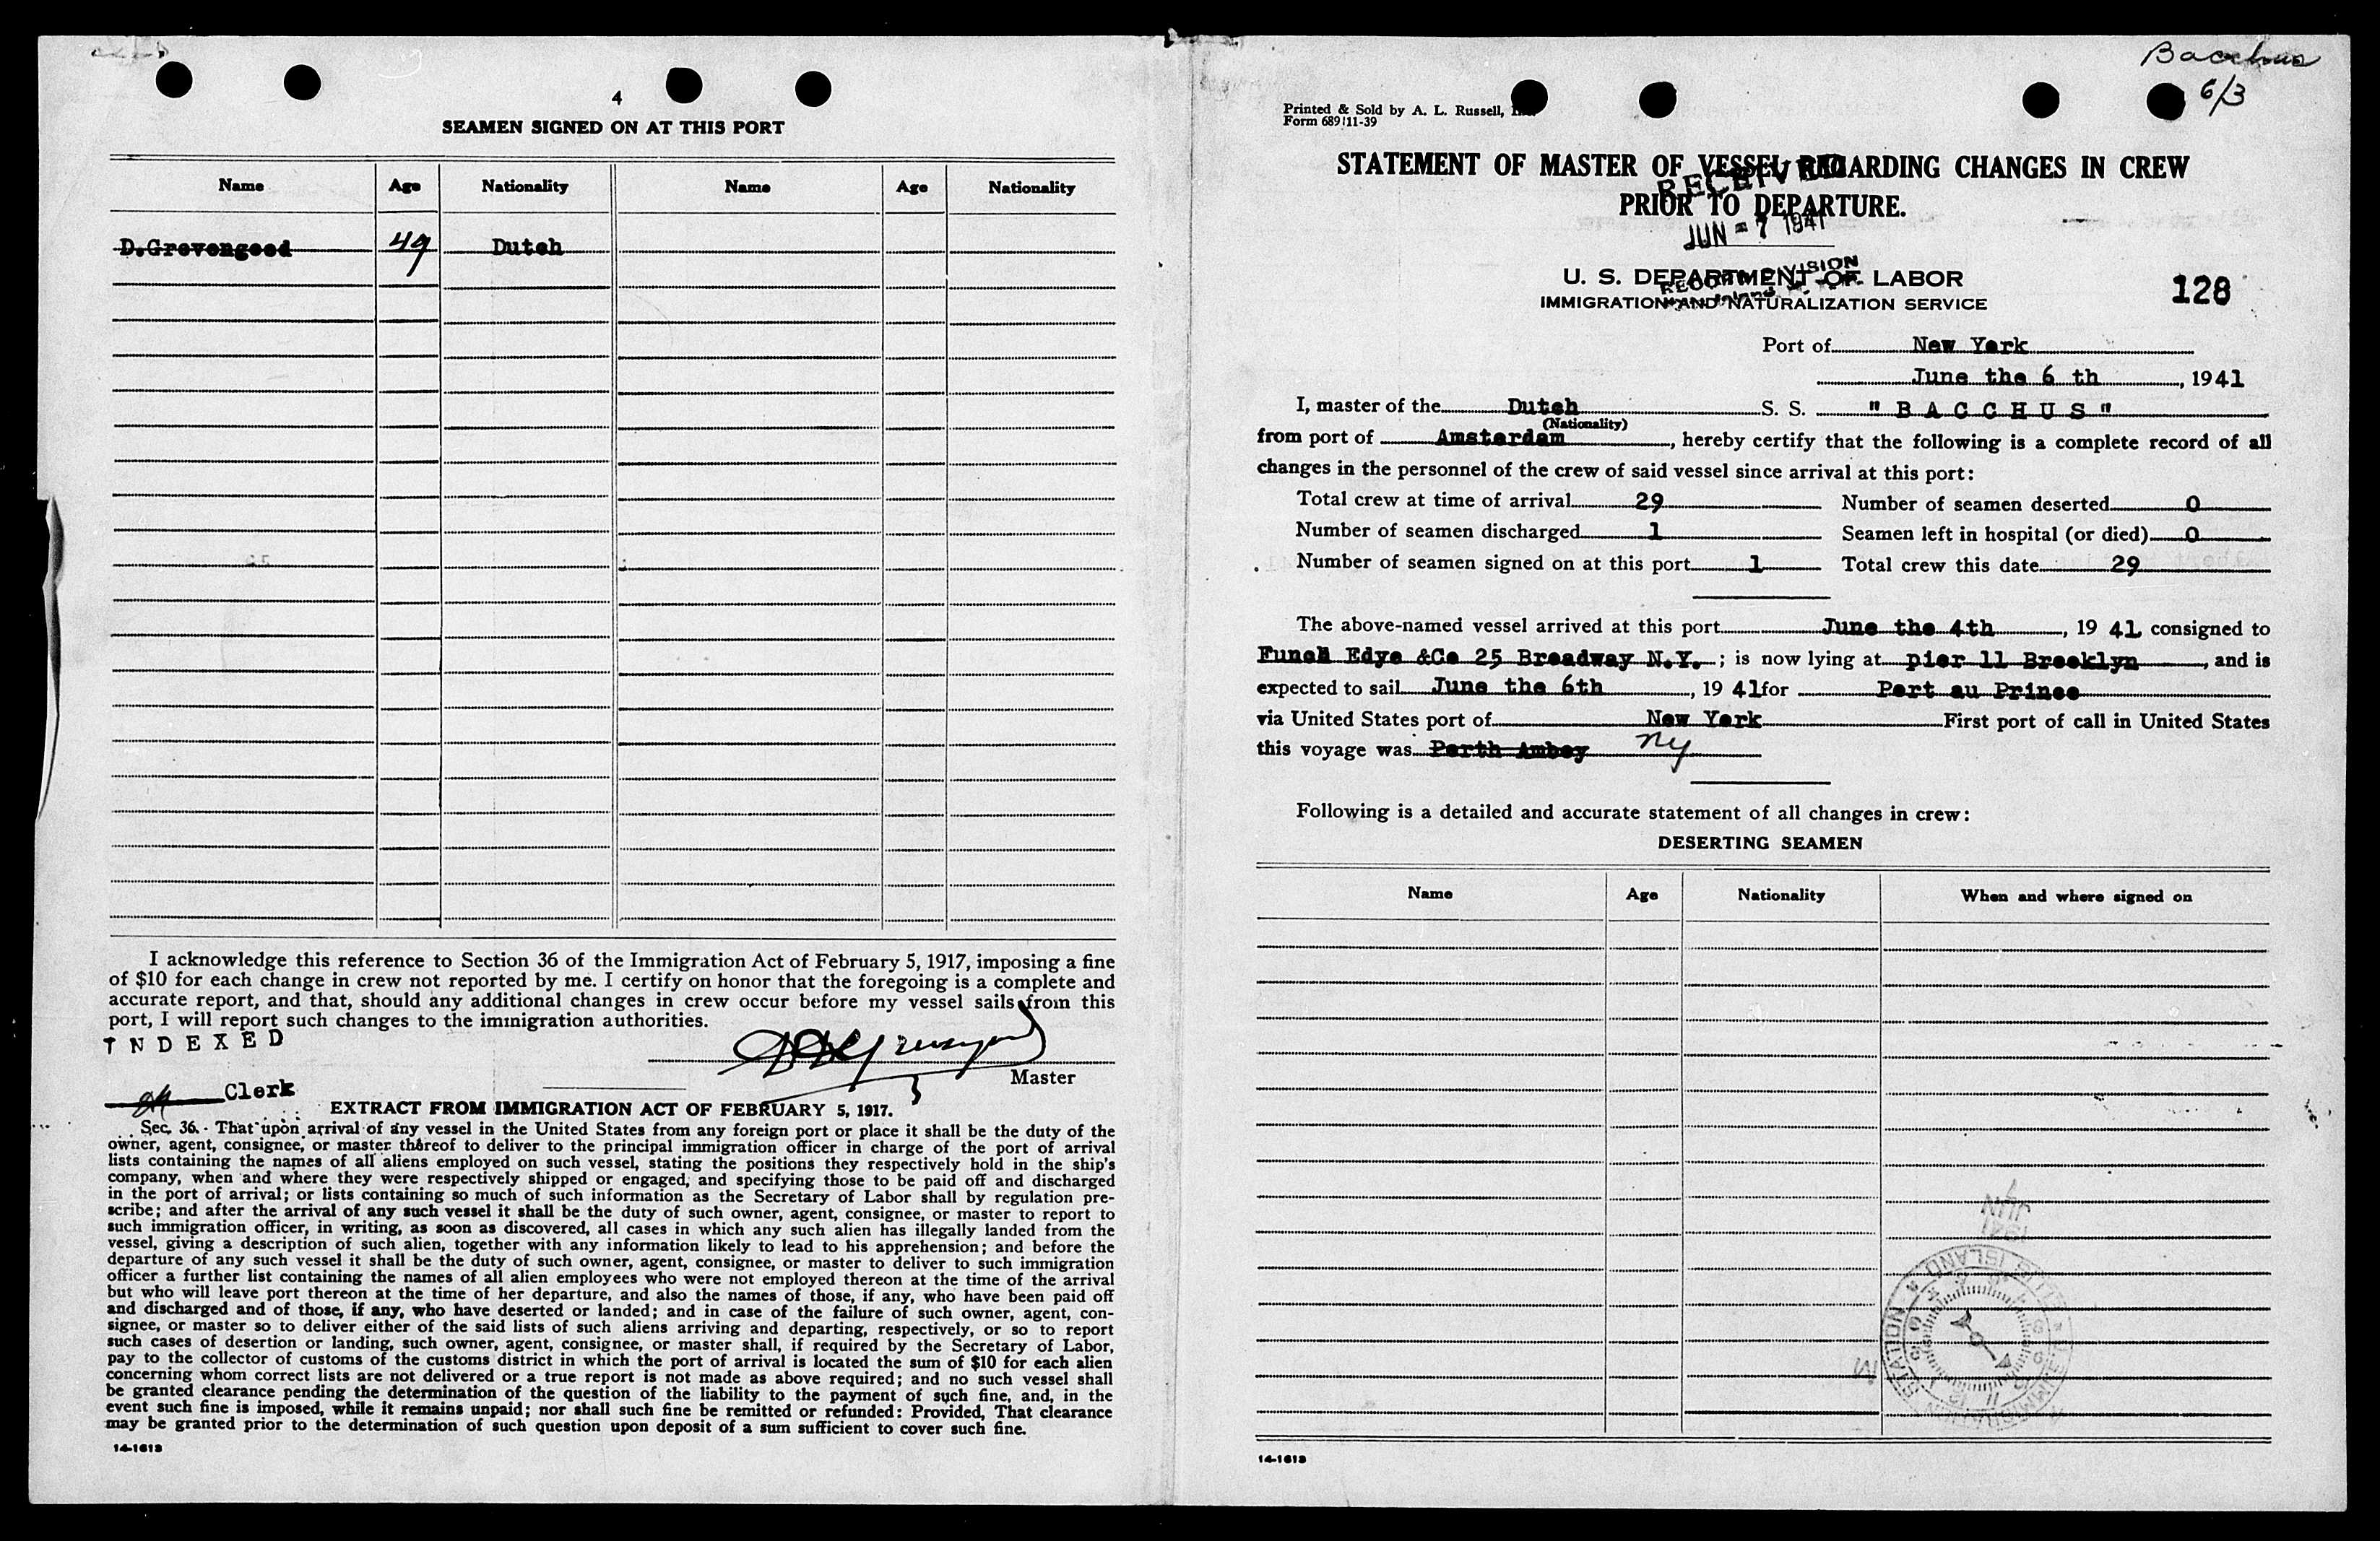 4
SEAMEN SIGNED ON AT THIS PORT
Name Age Nationality Name Age Nationality
D.Grevengoed 49 Dutch
I acknowledge this reference to Section 36 of the Immigration Act of February 5, 1917, imposing a fine
of $10 for each change in crew not reported by me. I certify on honor that the foregoing is a complete and
accurate report, and that, should any additional changes in crew occur before my vessel sails from this
port, I will report such changes to the immigration authorities.
INDEXED
Master
Clerk
EXTRACT FROM IMMIGRATION ACT OF FEBRUARY 5, 1917.
Sec. 36. That upon arrival of any vessel in the United States from any foreign port or place it shall be the duty of the
owner, agent, consignee, or master thereof to deliver to the principal immigration officer in charge of the port of arrival
lists containing the names of all aliens employed on such vessel, stating the positions they respectively hold in the ship's
company, when and where they were respectively shipped or engaged, and specifying those to be paid off and discharged
in the port of arrival; or lists containing so much of such information as the Secretary of Labor shall by regulation pre-
scribe; and after the arrival of any such vessel it shall be the duty of such owner, agent, consignee, or master to report to
such immigration officer, in writing, as soon as discovered, all cases in which any such alien has illegally landed from the
vessel, giving a description of such alien, together with any information likely to lead to his apprehension; and before the
departure of any such vessel it shall be the duty of such owner, agent, consignee, or master to deliver to such immigration
officer a further list containing the names of all alien employees who were not employed thereon at the time of the arrival
but who will leave port thereon at the time of her departure, and also the names of those, if any, who have been paid off
and discharged and of those, if any, who have deserted or landed; and in case of the failure of such owner, agent, con-
signee, or master so to deliver either of the said lists of such aliens arriving and departing, respectively, or so to report
such cases of desertion or landing, such owner, agent, consignee, or master shall, if required by the Secretary of Labor,
pay to the collector of customs of the customs district in which the port of arrival is located the sum of $10 for each alien
concerning whom correct lists are not delivered or a true report is not made as above required; and no such vessel shall
be granted clearance pending the determination of the question of the liability to the payment of such fine, and, in the
event such fine is imposed, while it remains unpaid; nor shall such fine be remitted or refunded: Provided, That clearance
may be granted prior to the determination of such question upon deposit of a sum sufficient to cover such fine.
14-1613
Bacchus
6/3
Printed & Sold by A. L. Russell, Inc.
Form 689 11-39
STATEMENT OF MASTER OF VESSEL REGARDING CHANGES IN CREW
PRIOR TO DEPARTURE.
RECEIVED
JUN - 7 1941
U. S. DEPARTMENT OF LABOR
IMMIGRATION AND NATURALIZATION SERVICE
128
Port of New York
June the 6 th, 1941
I, master of the Dutch S. S. "BACCHUS"
(Nationality)
from port of Amsterdam, hereby certify that the following is a complete record of all
changes in the personnel of the crew of said vessel since arrival at this port:
Total crew at time of arrival 29 Number of seamen deserted 0
Number of seamen discharged 1 Seamen left in hospital (or died) 0
Number of seamen signed on at this port 1 Total crew this date 29
The above-named vessel arrived at this port June the 4th, 19 41, consigned to
Funch Edye &Co 25 Broadway N.Y.; is now lying at pier 11 Brooklyn, and is
expected to sail June the 6th, 19 41for Port au Prince
via United States port of New York First port of call in United States
this voyage was Perth Amboy ny
Following is a detailed and accurate statement of all changes in crew:
DESERTING SEAMEN
Name Age Nationality When and where signed on
14-1613